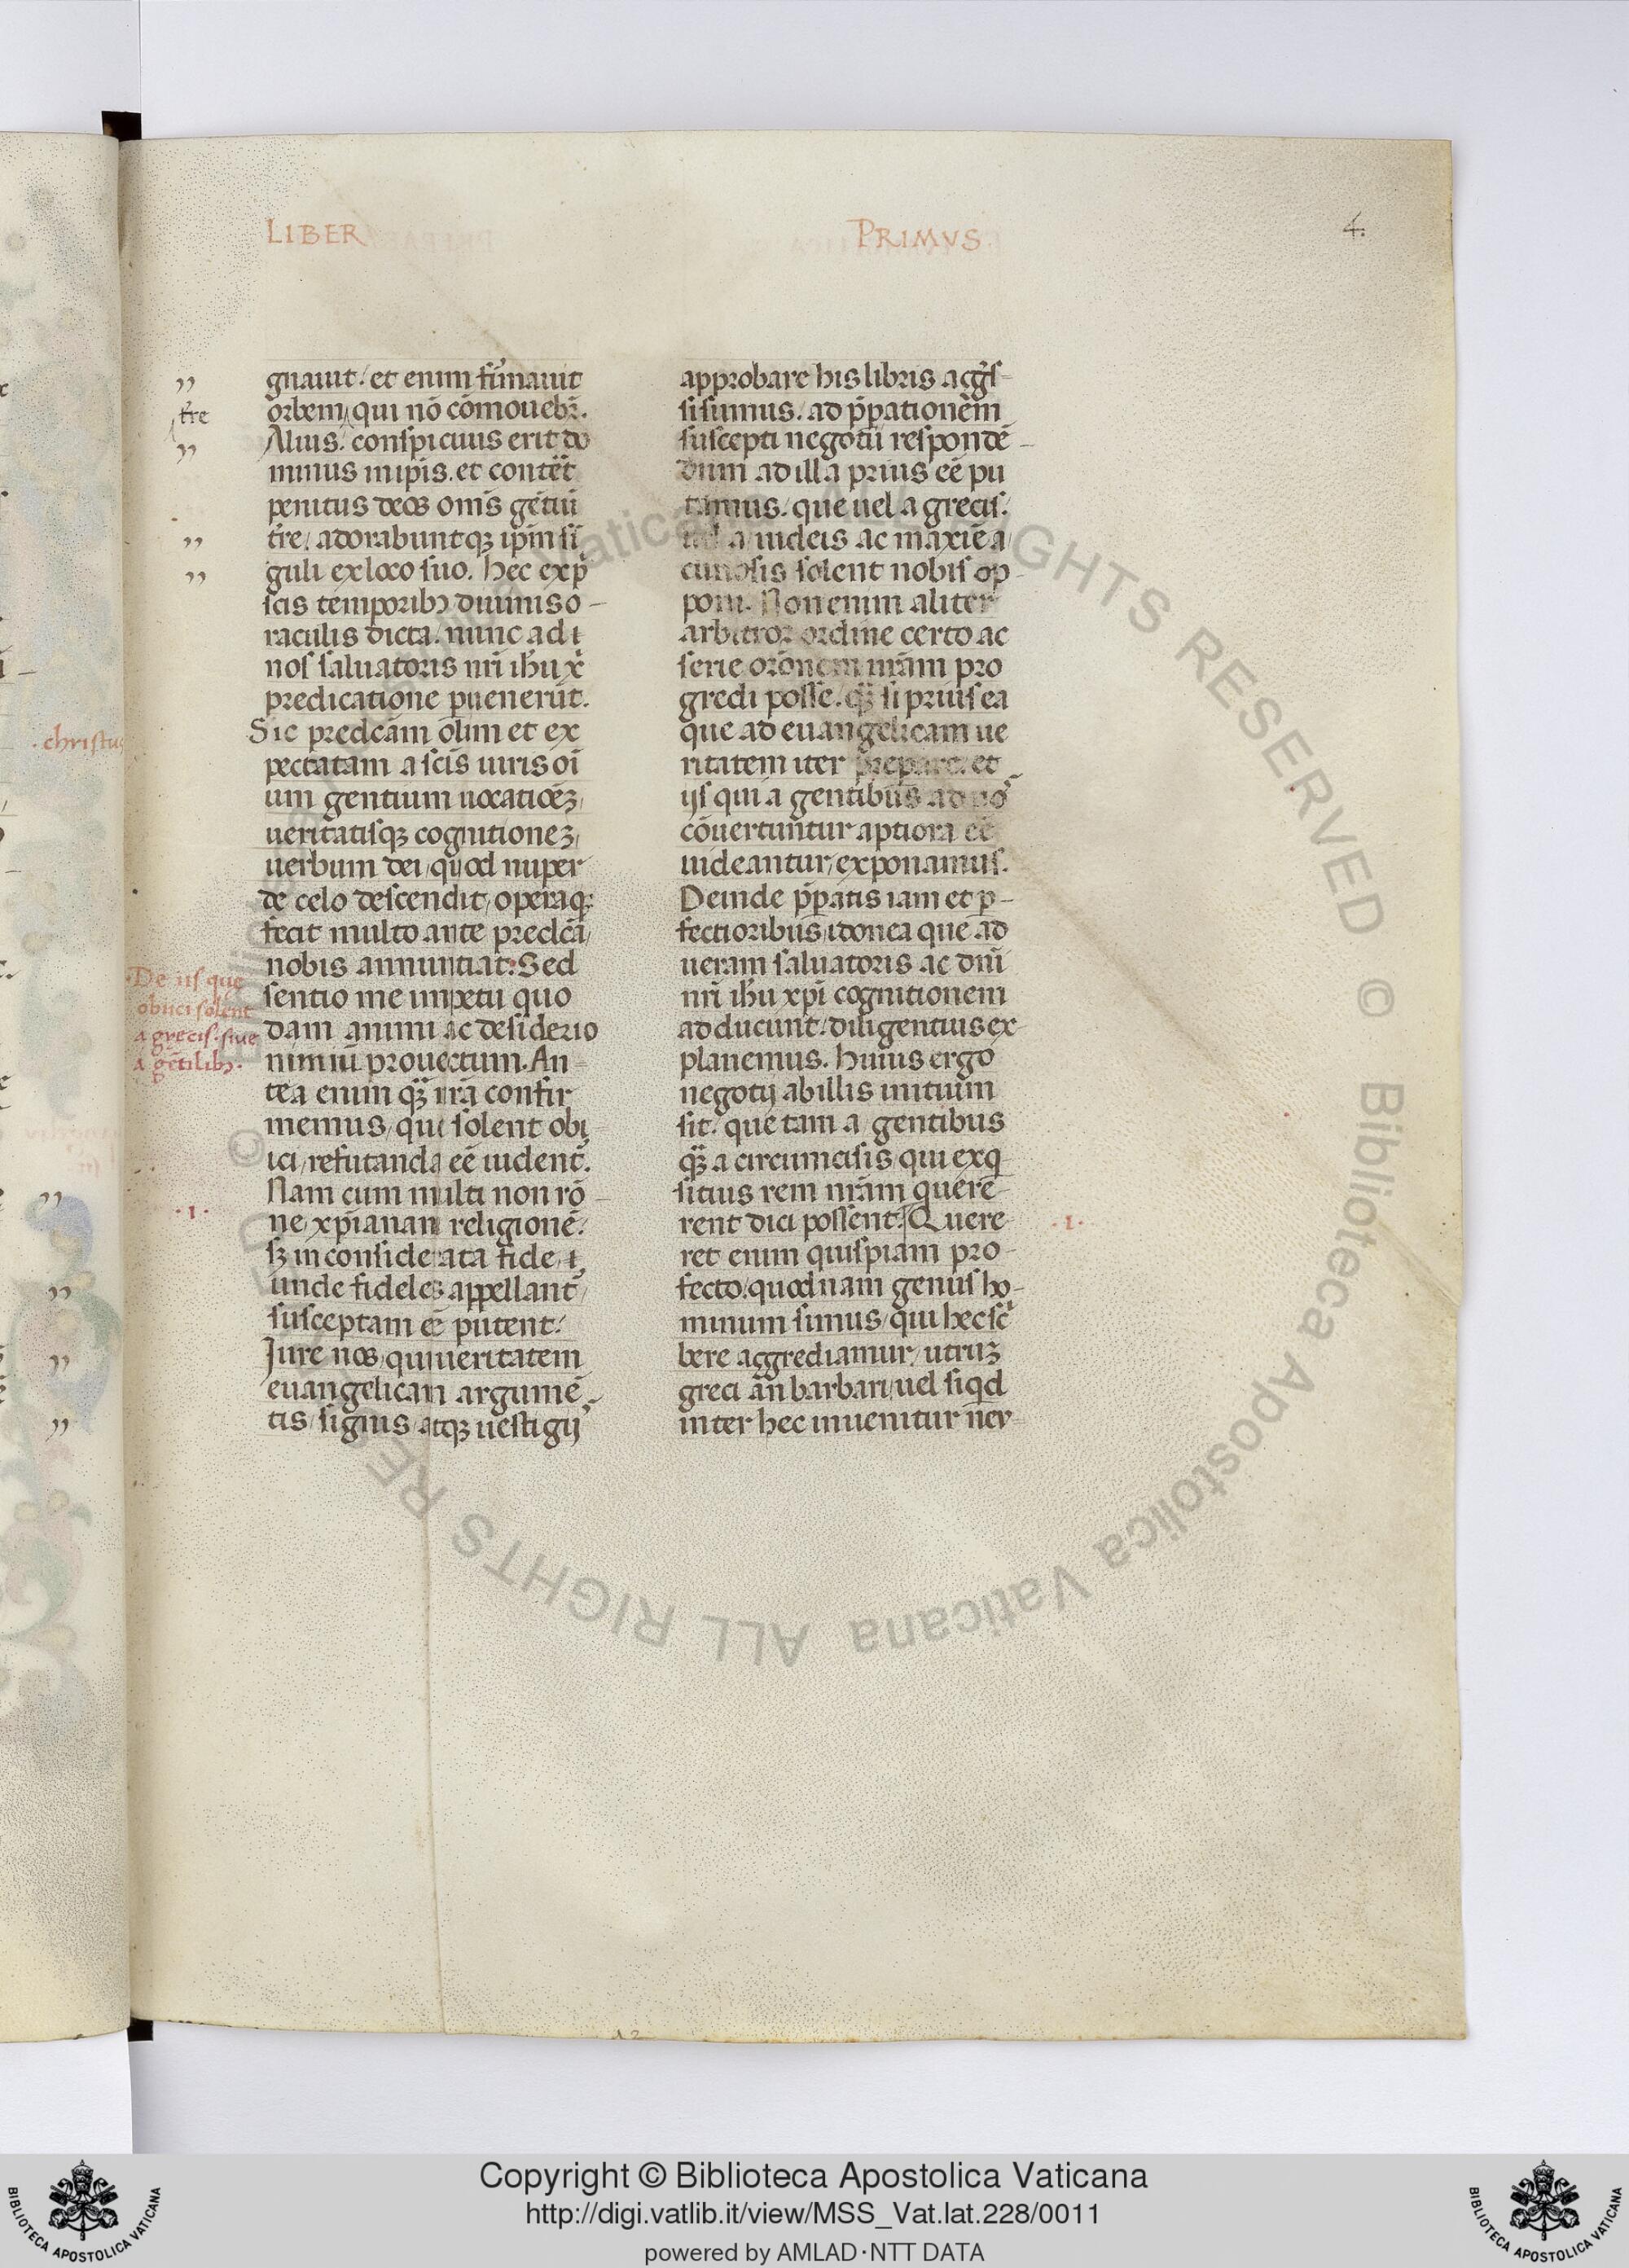 LIBER
PRIMVS
4.
gnauit. et enim firmauit
orbem qui nō cōmouebr̃.
t̃re
Alius. conspicuus erit do
minus in ip̃is. et conter̃t
penitus deos om̃s gẽtiũ
t̃re, adorabuntqꝫ ip̃m sĩ
guli ex loco suo. Hec exp̃
scis temporibꝫ diuinis o-
raculis dicta. nunc ad i
nos saluatoris nr̃i ihũ xp̃
predicatione puenerũt.
Sic predcãm olim et ex
pectatam a scĩs uiris oĩ
um gentium uocatiõeꝫ,
ueritatisqꝫ cognitioneꝫ,
uerbum dei, quod nuper
de celo descendit, operaqꝫ
fecit multo ante predcã,
nobis annuntiat: Sed
De iis que
obiici solent
a grecis. siue
a gẽtilibꝫ.
sentio me impetu quo
dam animi ac desiderio
nimiũ prouectum. An-
tea enim qꝫ̃ nr̃a confir
memus, qui solent obi
ici, refutanda eẽ uident̃.
Nam cum multi non rõ-
.1.
ne xp̃ianam religionẽ.
sꝫ inconsiderata fide, i,
unde fideles appellant̃,
susceptam eẽ putent.
Iure nos, qui ueritatem
euangelicam argumẽ-
tis, signis, atqꝫ uestigijˢ
approbare his libris aggr̃s-
si sumus. ad p̃pationẽm
suscepti negotii respondẽ-
dum ad illa prius eẽ pu
tamus. que uel a grecis.
uel a iudeis ac maxiẽ a
curiosis solent nobis op-
poni. Non enim aliter
arbitror ordine certo ac
serie orõnem nr̃am pro
gredi posse, qꝫ̃ si prius ea
que ad euangelicam ue
ritatem iter prepare. et
ijs qui a gentibus ad noˢ
cõuertuntur aptiora eẽ
uideantur, exponamus.
Deinde p̃patis iam et p-
fectioribus, idonea que ad
ueram saluatoris ac dñi
nr̃i ihũ xpĩ cognitionem
adducunt. diligentius ex-
planemus. huius ergo
negotij ab illis initium
sit. que tam a gentibus
qꝫ̃ a circumcisis, qui exq-
sitius rem nr̃am querẽ-
rent dici possent. Quere-
.1.
ret enim quispiam pro-
fecto. quodnam genus ho-
minum simus, qui hec sc̃
bere aggrediamur, utruꝫ
greci añ barbari, uel siqd
inter hec inuenitur neu
.christus
Copyright © Biblioteca Apostolica Vaticana
http://digi.vatlib.it/view/MSS_Vat.lat.228/0011
powered by AMLAD·NTT DATA
BIBLIOTECA APOSTOLICA VATICANA
BIBLIOTECA APOSTOLICA VATICANA
© Biblioteca Apostolica Vaticana ALL RIGHTS RESERVED
© Biblioteca Apostolica Vaticana ALL RIGHTS RESERVED